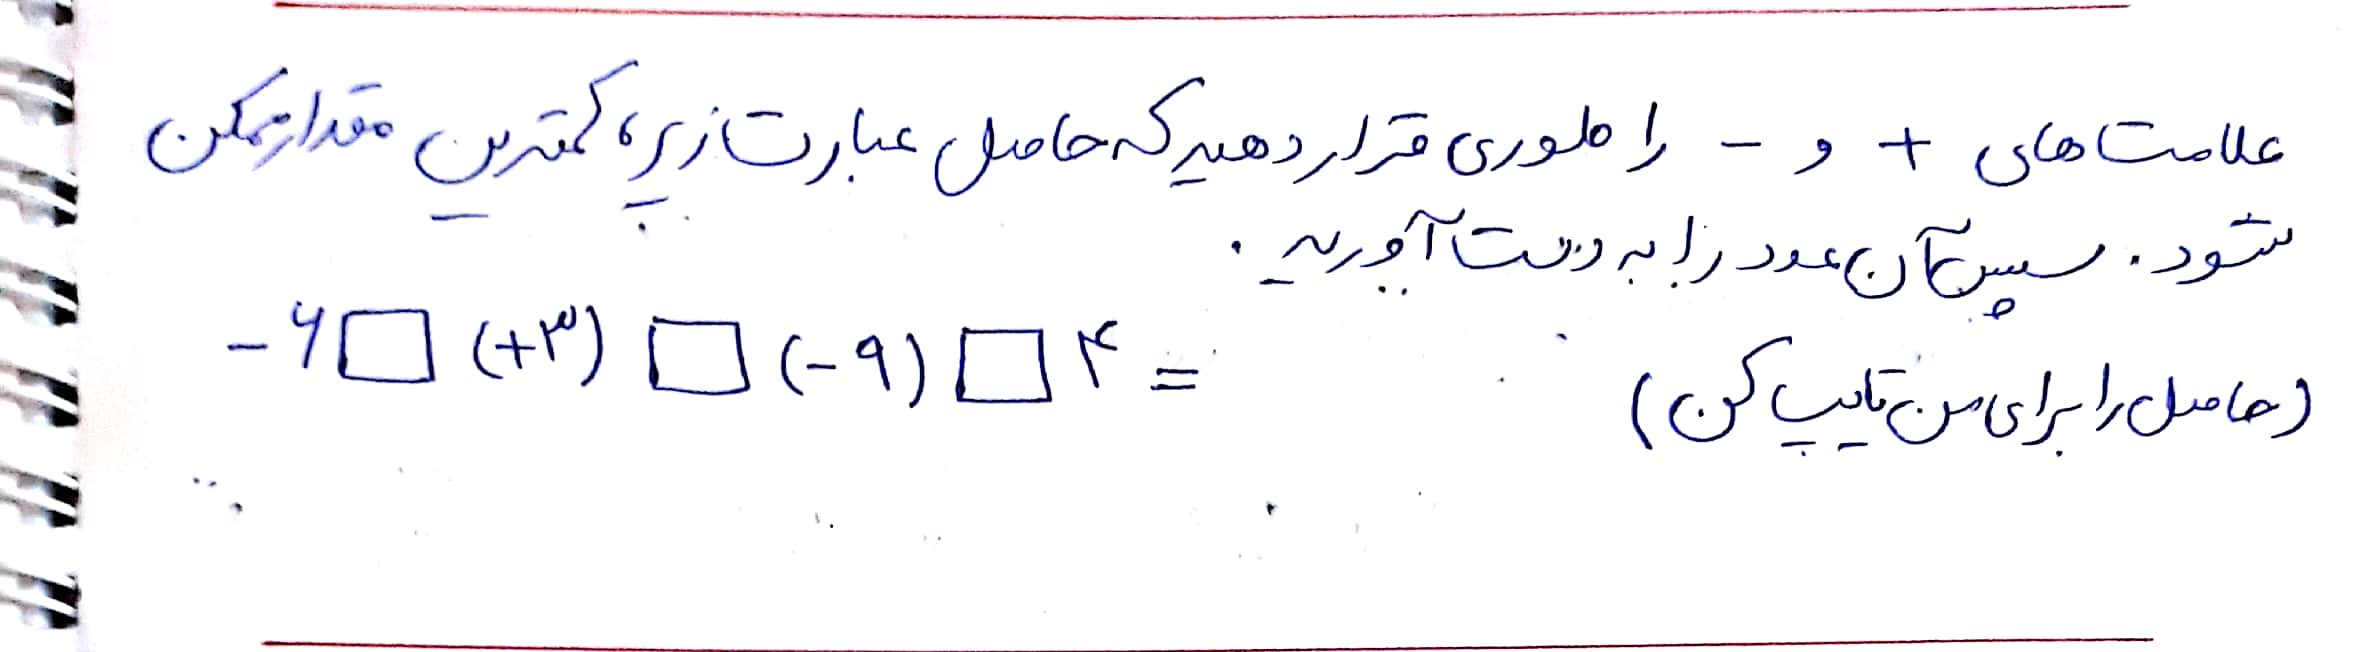 علامت های + و - را طوری قرار دهید که حاصل عبارت زیر، کمترین مقدار ممکن
شود. سپس آن عدد را به دست آورید.
-۶ □ (+۳) □ (-۹) □ ۴ =
(حاصل را برای من تایپ کن)